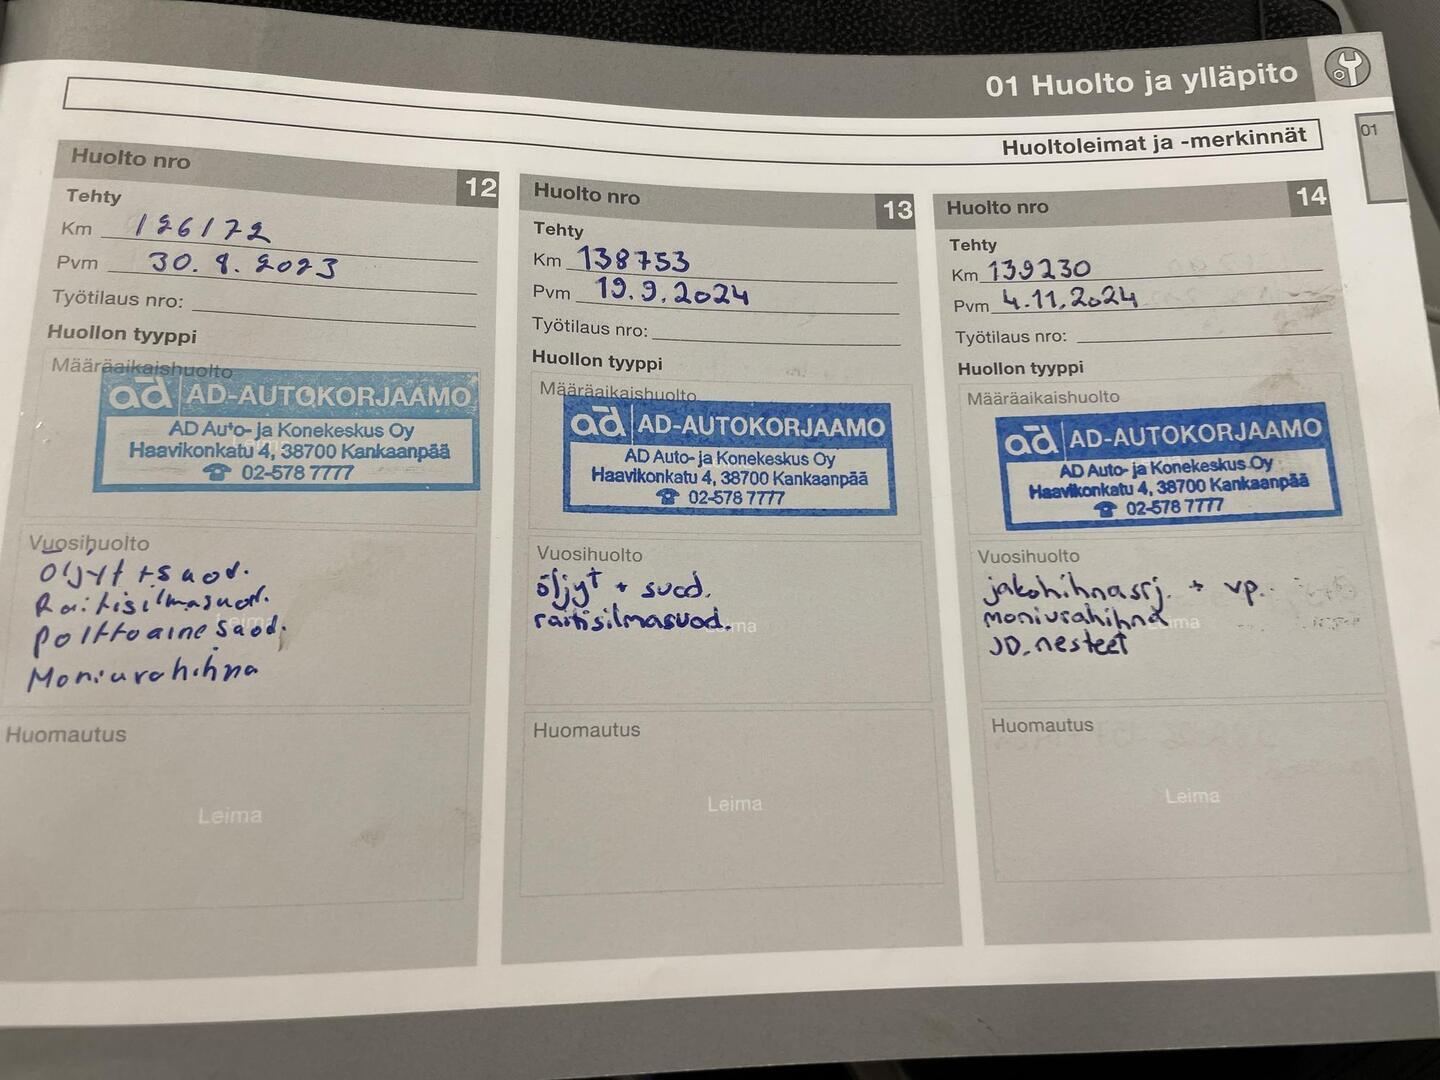 01 Huolto ja ylläpito
01
Huoltoleimat ja -merkinnät
Huolto nro 12
Tehty
Km 126172
Pvm 30.8.2023
Työtilaus nro:
Huollon tyyppi
Määräaikaishuolto
ad AD-AUTOKORJAAMO
AD Auto- ja Konekeskus Oy
Haavikonkatu 4, 38700 Kankaanpää
☎ 02-578 7777
Vuosihuolto
Öljyt + suod.
Raitisilmasuod.
polttoaine suod.
Moniurahihna
Huomautus
Leima
Huolto nro 13
Tehty
Km 138753
Pvm 19.9.2024
Työtilaus nro:
Huollon tyyppi
Määräaikaishuolto
ad AD-AUTOKORJAAMO
AD Auto- ja Konekeskus Oy
Haavikonkatu 4, 38700 Kankaanpää
☎ 02-578 7777
Vuosihuolto
öljyt + suod.
raitisilmasuod.
Huomautus
Leima
Huolto nro 14
Tehty
Km 139230
Pvm 4.11.2024
Työtilaus nro:
Huollon tyyppi
Määräaikaishuolto
ad AD-AUTOKORJAAMO
AD Auto- ja Konekeskus Oy
Haavikonkatu 4, 38700 Kankaanpää
☎ 02-578 7777
Vuosihuolto
jakohihnasrj. + vp.
moniurahihna
JD.nesteet
Huomautus
Leima